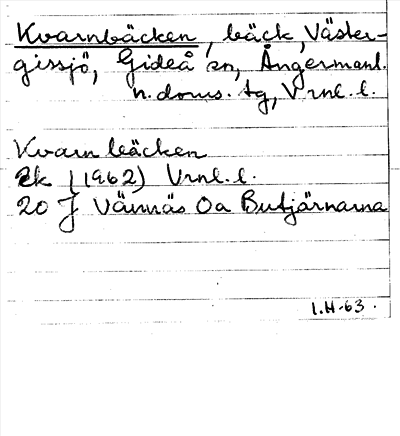 Kvarnbäcken, bäck, Väster-
gissjö, Gideå sn, Ångermanl.
n. doms. tg, V rnl. l.
Kvarnbäcken
Ek (1962) Vrnl. l.
20 J Vännäs Oa Butjärnarna
I.H-63.